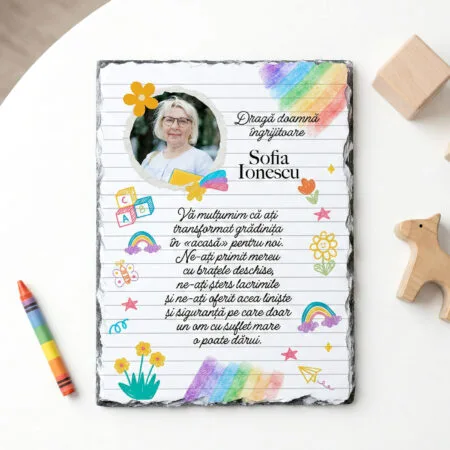 Dragă doamnă
îngrijitoare
Sofia
Ionescu
Vă mulțumim că ați
transformat grădinița
în «acasă» pentru noi.
Ne-ați primit mereu
cu brațele deschise,
ne-ați șters lacrimile
și ne-ați oferit acea liniște
și siguranță pe care doar
un om cu suflet mare
o poate dărui.
C
A B